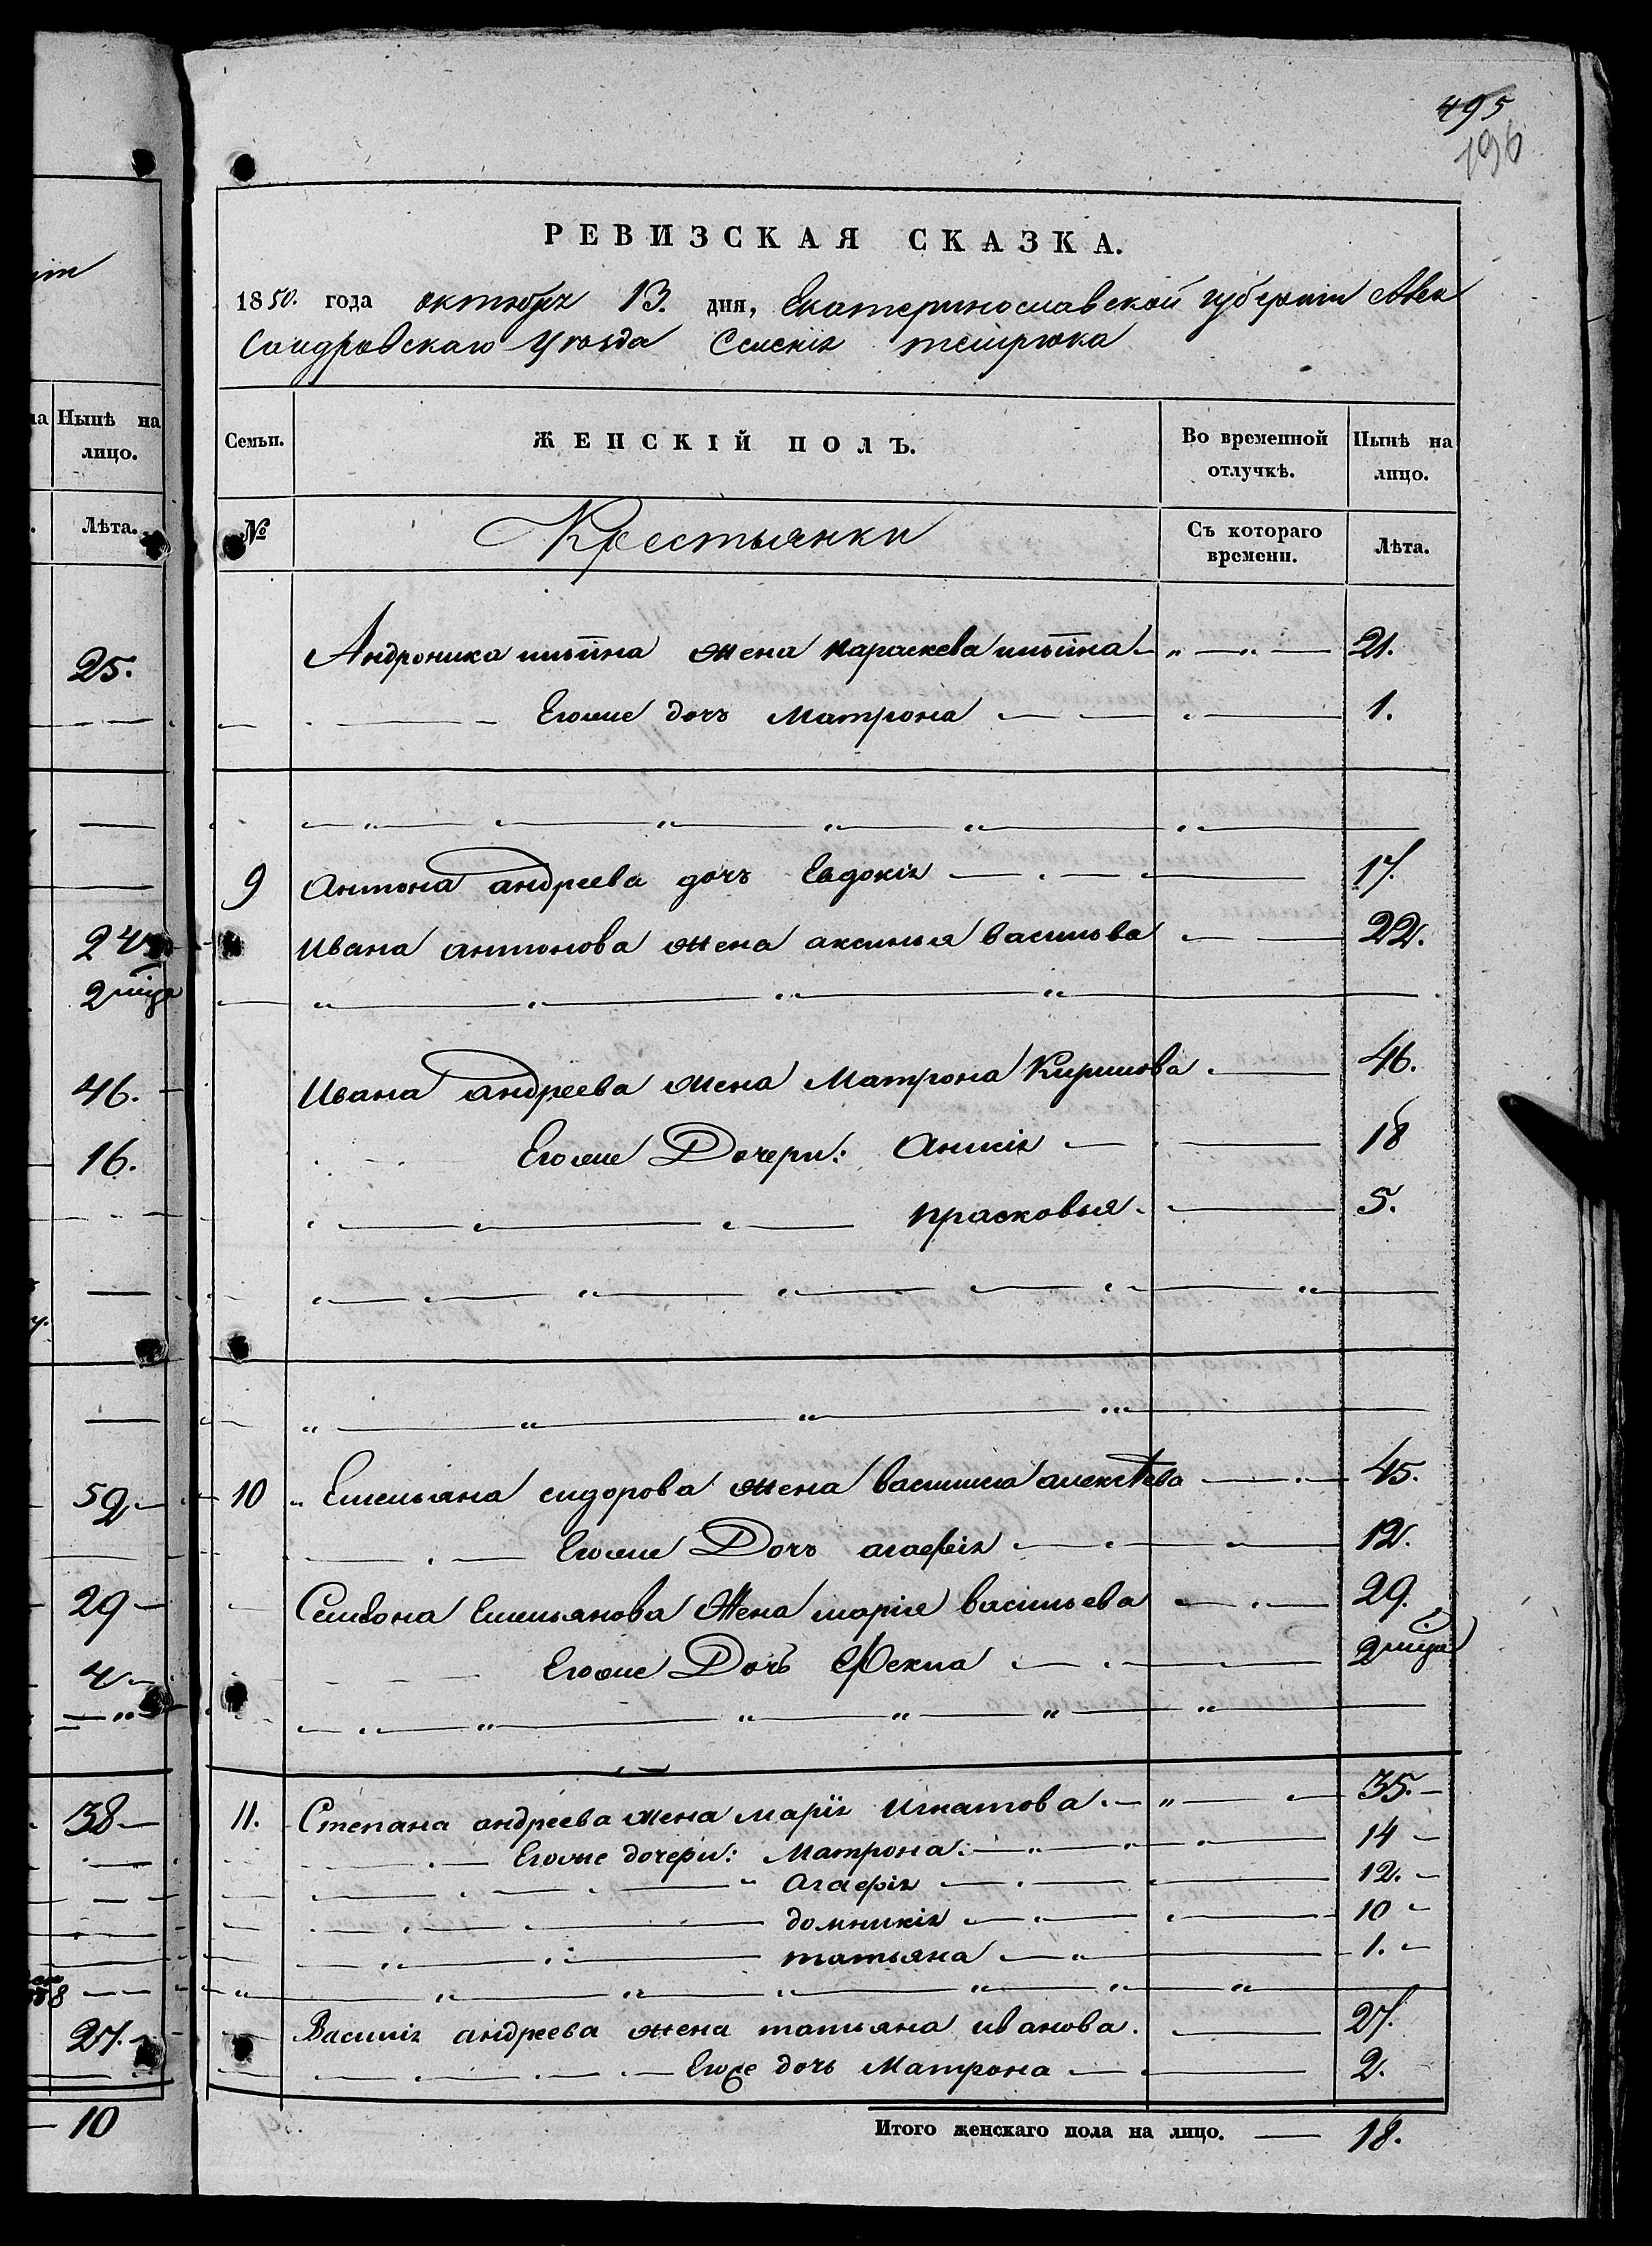 495
196
РЕВИЗСКАЯ СКАЗКА.
1850. года октября 13. дня, Екатеринославской губернии Алек
Сандровскаго Уѣзда Селенія темрюка
на Нынѣ на
лицо.
Лѣта.
25.
24
2 мца
46.
16.
59
29
4
38
27.
10
Семьи. ЖЕНСКІЙ ПОЛЪ. Во временной отлучкѣ. Нынѣ на лицо.
№ Крестьянки Съ котораго времени. Лѣта.
Андроника ильина жена параскева ильина 21.
Егоже дочь Матрона 1.
9 Антона андреева дочь Евдокія 17.
Ивана антонова жена аксинья васильва 22.
Ивана андреева жена Матрона Кирилова 46.
Егоже Дочери: Анисія 18
прасковья 5.
10 Емельяна сидорова жена василиса алексѣева 45.
Егоже Дочь агафія 12.
Семіона Емельянова Жена марія васильева 29.
Егоже Дочь Фекла 2 мца
11. Степана андреева жена марія Игнатова 35.
Егоже дочери: Матрона: 14
Агафія 12.
домникія 10
татьяна 1.
Василія андреева жена татьяна иванова. 27.
Егоже дочь Матрона 2.
Итого женскаго пола на лицо. 18.